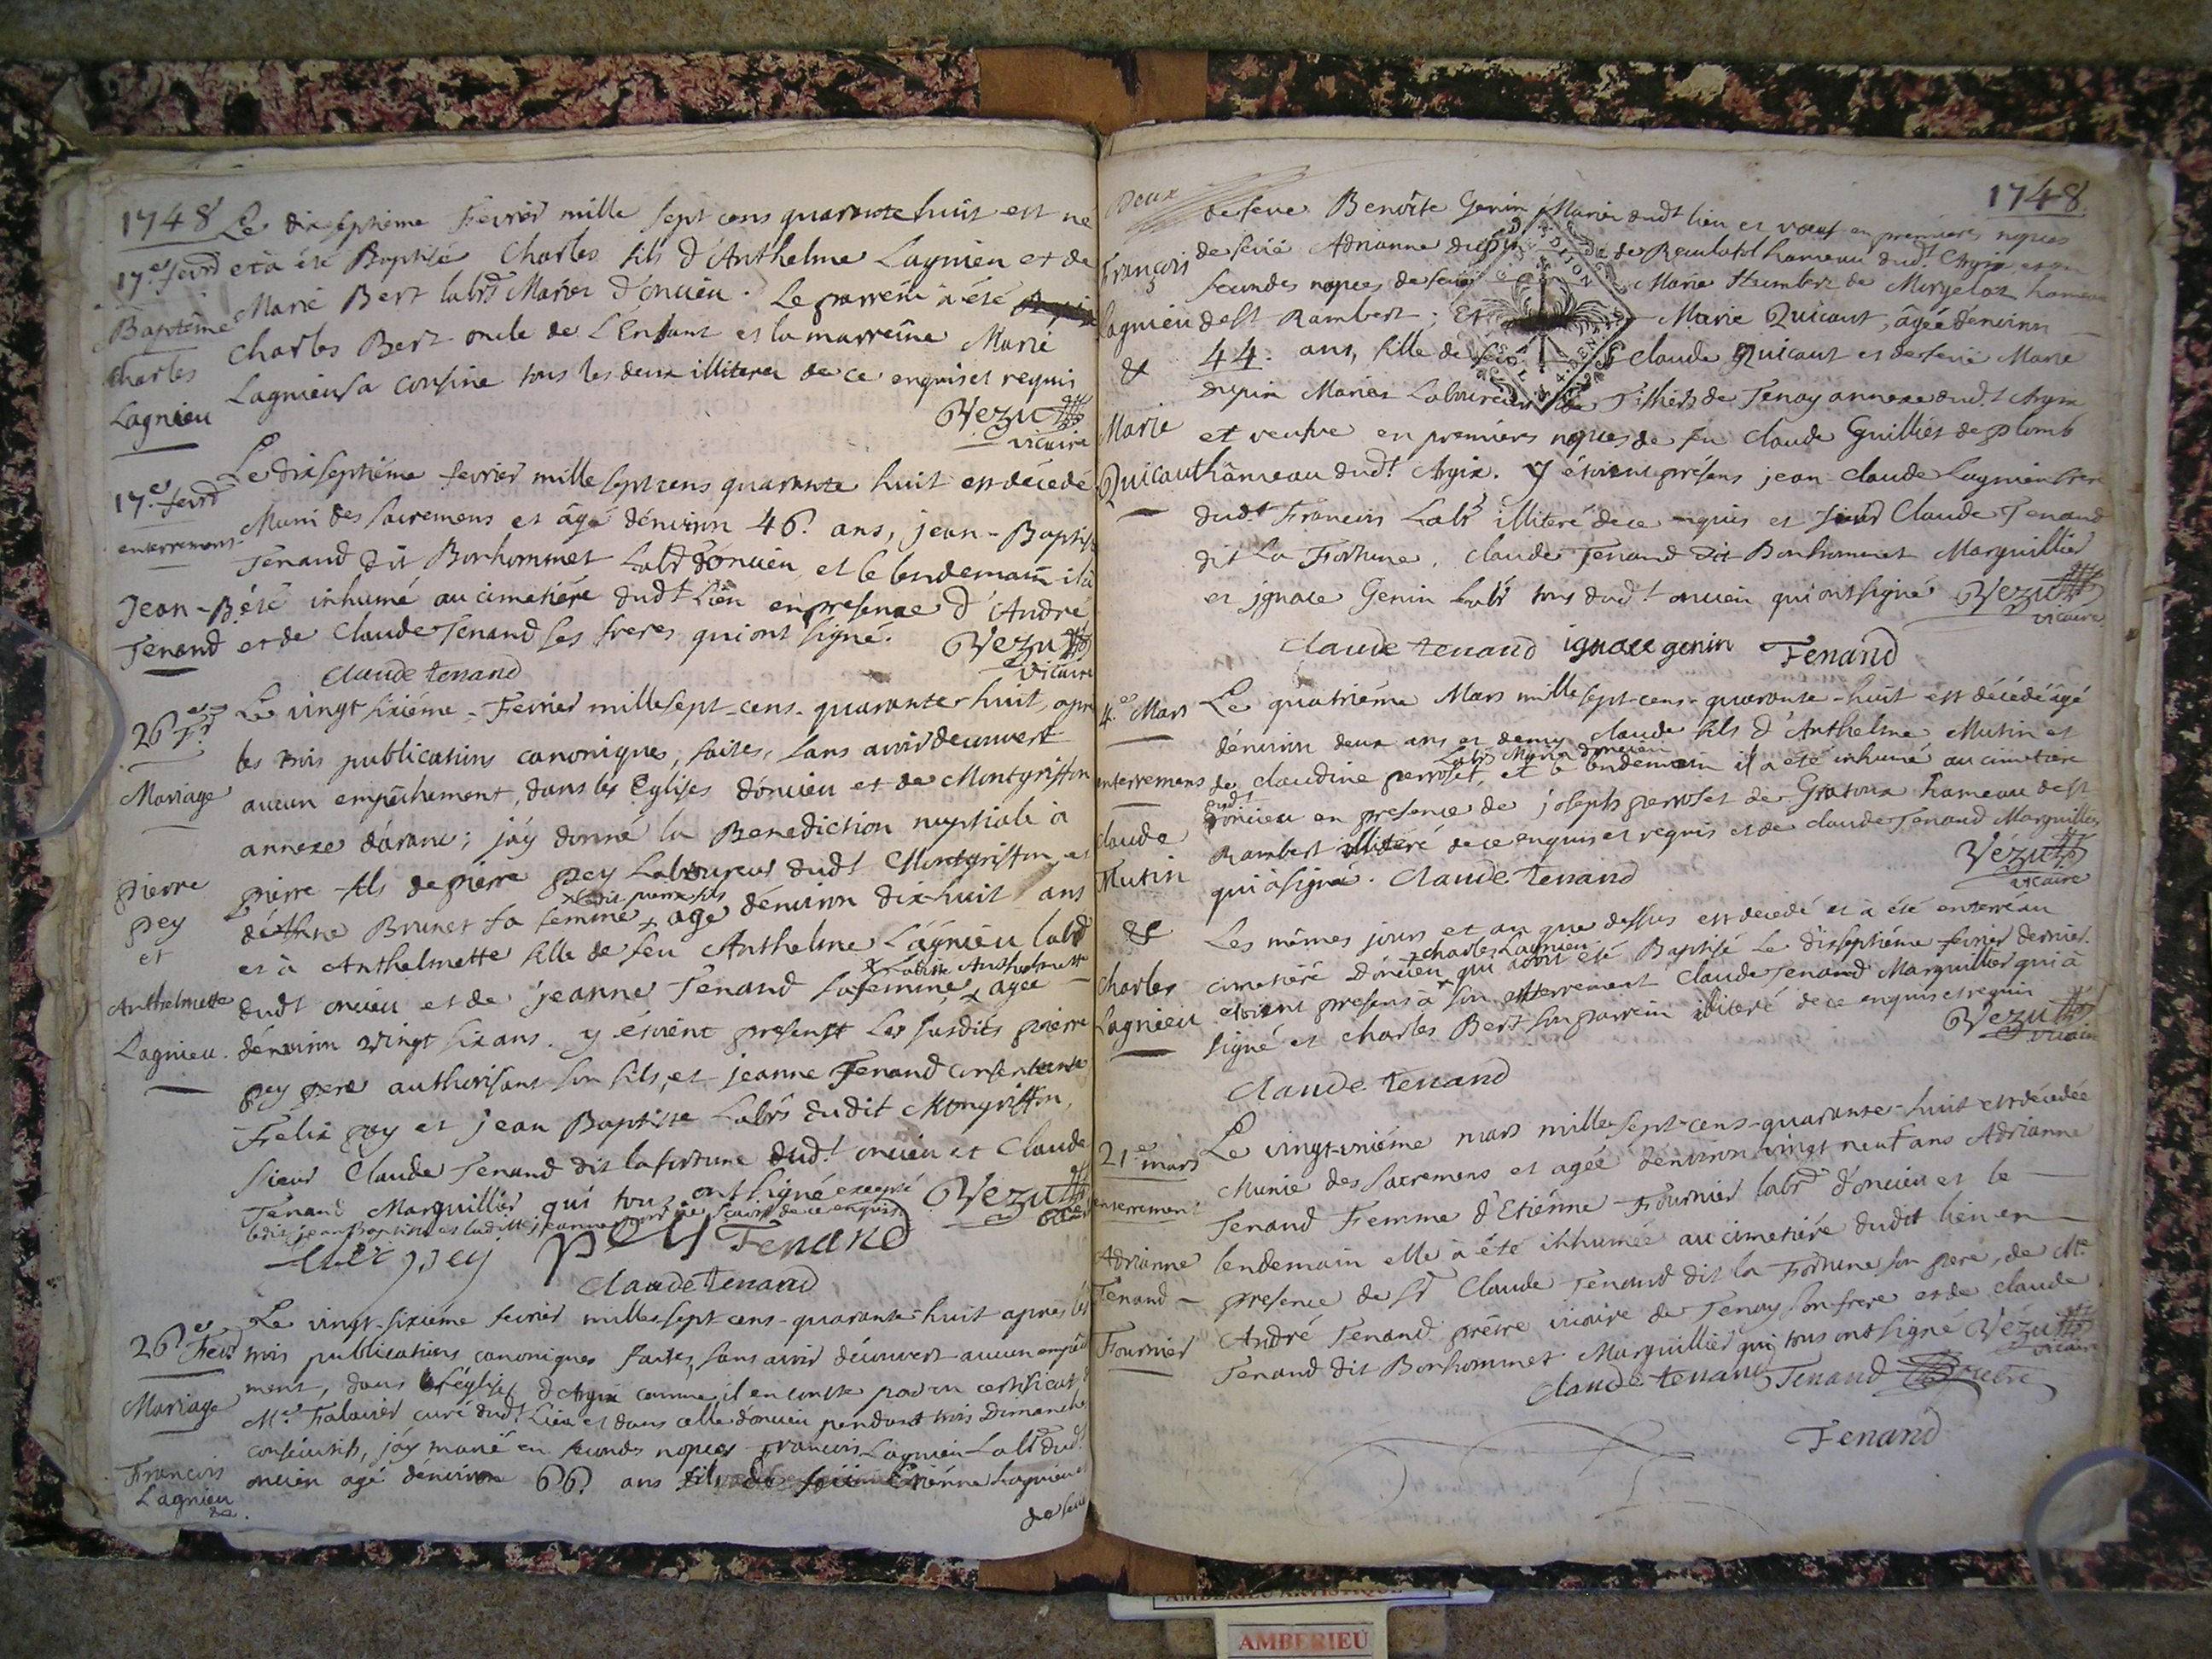 1748
Le dixseptième Fevrier mille sept cens quarante huit est né
17.e fevrr et a été Baptisé Charles fils d'Anthelme Lagnieu et de
Baptême Marie Bert labrs Mariés d'oncieu. Le parrein à été
Charles Charles Bert oncle de L'Enfant et la marreine Marie
Lagnieu Lagnieu sa cousine tous les deux illiterés de ce enquis et requis
Vezu
vicaire
17.e fevrr Le dixseptiéme fevrier mille sept cens quarante huit est décedé
enterrement Muni des sacremens et âgé d'environ 46. ans, jean-Baptiste
Tenand dit Bonhommet Labr d'oncieu et le lendemain il à
Jean-B. été inhumé au cimetiére dudt Lieu en presence d'André
Tenand et de Claude Tenand ses freres qui ont signé. Vezu
Claude tenand vicaire
26.e Fr Le vingt sixiéme Fevrier mille sept-cens-quarante-huit, apre
les trois publications canoniques, faites, sans avoir decouvert
Mariage aucun empêchement, dans les Eglises d'oncieu et de Montgriffon
annexe d'aranc; j'ay donné la Benediction nuptiale à
pierre pierre fils de pierre pey Laboureur dudt Montgriffon, et
pey Brunet sa femme, agé d'environ dix-huit ans
et et à Anthelmette fille de feu Anthelme Lagnieu labr
Anthelmette dudt oncieu et de jeanne Tenand sa femme, agée
Lagnieu. d'environ vingt six ans. y étoient presens Les susdits pierre
pey pere authorisant son fils, et jeanne Tenand consentante
Felix pey et jean Baptiste Labrs dudit Mongriffon,
sieur Claude Tenand dit la fortune dudt oncieu et Claude
Tenand Marguillier qui tous ont signé excepté Vezu
ledit jean Baptiste et ladite jeanne pour ne scavoir de ce enquis
pey Tenand
Claude tenand
26.e Fevr Le vingt-sixiéme fevrier mille sept cens-quarante-huit apres les
trois publications canoniques faites, sans avoir découvert aucun empêche
Mariage ment, dans l'église d'Argis comme il en conste par un certificat
Mre Falavier curé dudt Lieu et dans celle d'oncieu pendant trois Dimanches
consécutifs, j'ay marié en secondes nopces francois Lagnieu Labr dudt
François oncieu agé d'environ 66. ans fils de Etiénne Lagnieu et
Lagnieu
& de feue
Deux 1748
de feue Benoîte Genin Mariés dudt lieu et veuf en premieres nopces
François de feüe Adrianne dupin de hameau dudt Argis, et en
secondes nopces de feüe Marie Humbert de Morgelaz hameau
Lagnieu de st Rambert; Et Marie Quicaut, âgée denviron
& 44. ans, fille de feu Claude Quicaut et de feüe Marie
dupin Mariés Laboureurs de Tenay annexe dudt Argis
Marie et veufve en premieres nopces de feu claude Guillier de plomb
Quicaut hâmeau dudt Argis. Y étoient présens jean-claude Lagnieu frere
dudt Francois Labr illiteré de ce enquis et sieur Claude Tenand
dit La Fortune, claude Tenand dit Bonhommet Marguillier
et jgnace Genin Labr tous dudt oncieu qui ont signé Vezu
vicaire
Claude tenand ignace genin Tenand
4.e Mars Le quatriéme Mars mille sept-cens-quarante-huit est décédé âgé
d'environ deux ans et demy claude fils d'Anthelme Mutin et
Labrs Mariés d'oncieu
enterremens de claudine perroset, et le lendemain il a été inhumé au cimetiere
dudt
Claude oncieu en presence de joseph perroset de Gratoux hameau de st
Mutin Rambert illiteré de ce enquis et requis et de claude Tenand Marguillier
qui à signé. Claude tenand Vézu
vicaire
& Les mêmes jours et an que dessus est decedé et à été enterré au
charles Lagnieu
Charles cimetiére d'oncieu qui avoit été Baptisé Le dixseptiéme fevrier dernier.
Lagnieu etoient presens à son enterrement Claude Tenand Marguillier qui à
signé et charles Bert son parrein illiteré de ce enquis et requis
Vezu
vicaire
Claude tenand
21.e mars Le vingt-uniéme mars mille sept-cens-quarante-huit est décédée
enterrement Munie des sacremens et agée d'environ vingt neuf ans Adrianne
Tenand Femme d'Etiénne Fournier labr d'oncieu et le
Adrianne lendemain elle à été inhumée au cimetiére dudit lieu en
Tenand presence de sr Claude Tenand dit la Fortune son pere, de Mre
Fournier André Tenand prêtre vicaire de Tenay son frere et de claude
Tenand dit Bonhommet Marguillier qui tous ont signé Vézu
vicaire
Claude tenand Tenand prêtre
Tenand
AMBERIEU ARTISTIQUE
AMBERIEU